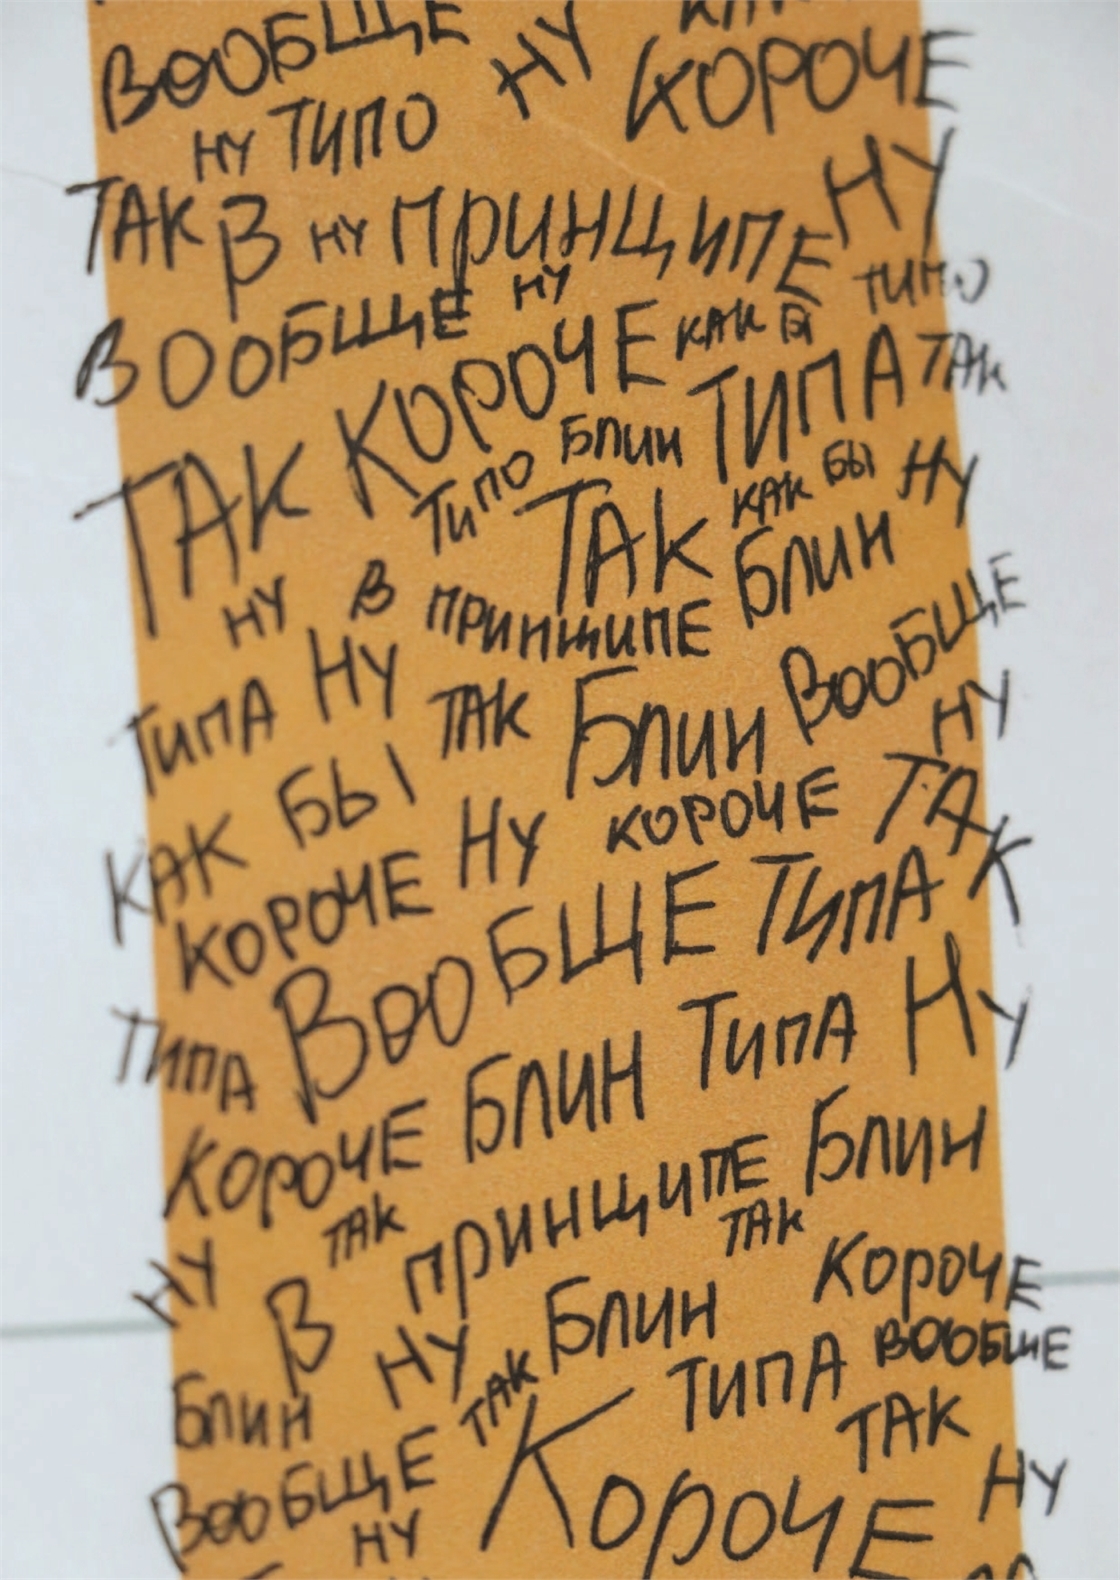 ВООБЩЕ НУ
КОРОЧЕ
НУ ТИПО
ТАК В НУ ПРИНЦИПЕ НУ
ВООБЩЕ НУ ТИПО
ТАК КОРОЧЕ КАК БЫ
ТИПО БЛИН ТИПА ТАК
ТАК КАК БЫ НУ
НУ В ПРИНЦИПЕ БЛИН
ТИПА НУ ТАК БЛИН ВООБЩЕ
НУ
КАК БЫ
КОРОЧЕ НУ КОРОЧЕ ТАК
ТИПА ВООБЩЕ ТИПА
КОРОЧЕ БЛИН ТИПА НУ
НУ ТАК
В ПРИНЦИПЕ БЛИН
ТАК
БЛИН НУ БЛИН КОРОЧЕ
ТАК ТИПА ВООБЩЕ
ВООБЩЕ ТАК
НУ КОРОЧЕ НУ